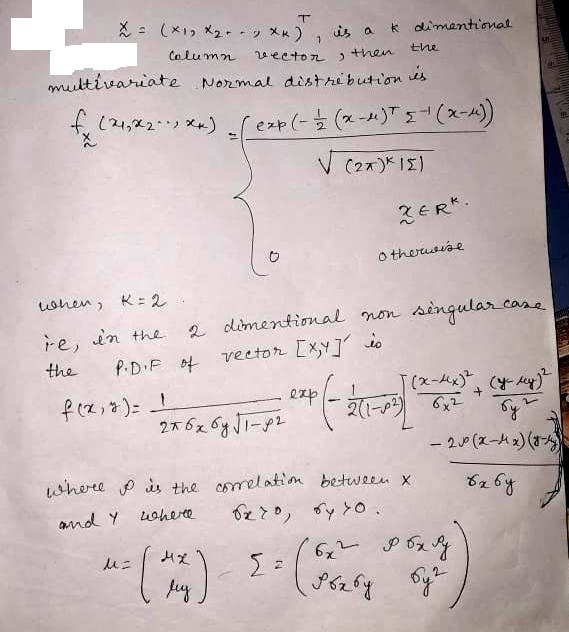 x̰ = (x₁, x₂, . . , xₖ)ᵀ, is a k dimentional
column vector, then the
multivariate Normal distribution is
f_x̰ (x₁, x₂ . . , xₖ) = { exp(-1/2 (x-μ)ᵀ Σ⁻¹ (x-μ)) / √((2π)ᵏ |Σ|)
x̰ ∈ Rᵏ.
0 otherwise
when, K = 2.
i.e, in the 2 dimentional non singular case
the P.D.F of vector [X,Y]' is
f(x, y) = 1 / (2π σx σy √(1-ρ²)) exp(- 1/(2(1-ρ²)) [ (x-μx)²/σx² + (y-μy)²/σy²
- 2ρ(x-μx)(y-μy) / σx σy
where ρ is the correlation between X
and Y where σx > 0, σy > 0.
μ = (μx μy) Σ = (σx² ρσxρy
ρσxσy σy²)